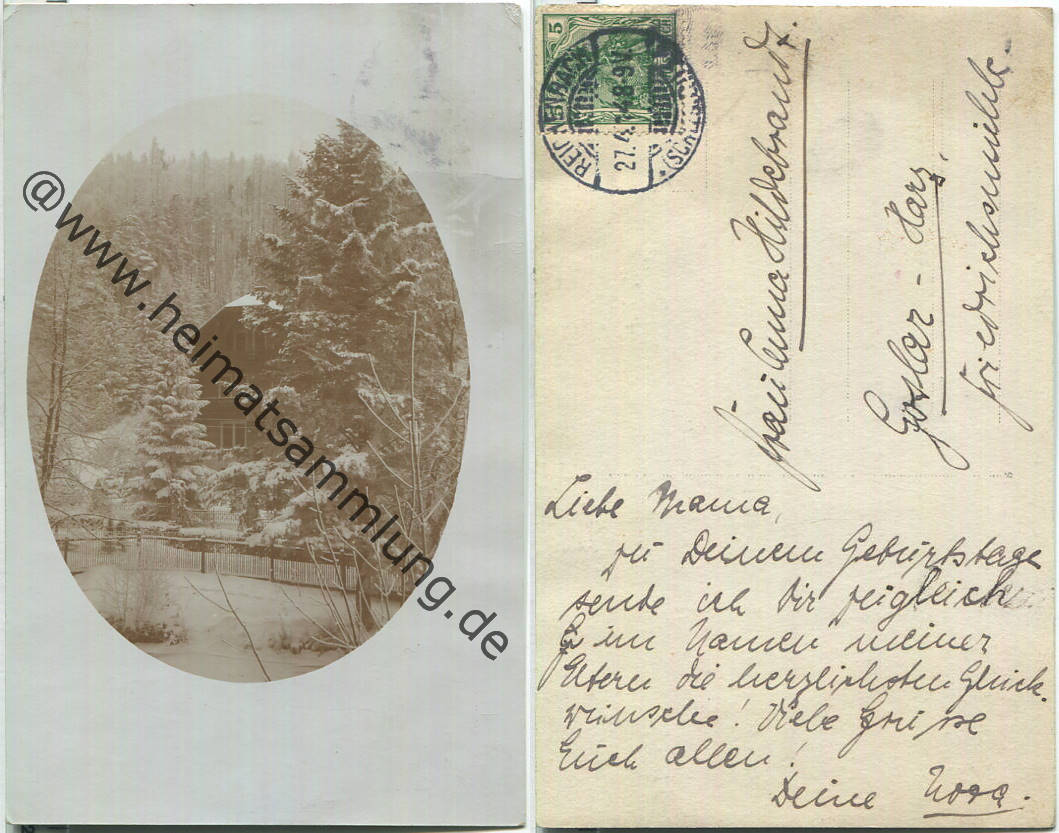 @www.heimatsammlung.de
5
REICHENBACH
27.4. 8-9V.
(SCHLESIEN)
Frau Emma Hildebrandt.
Goslar - Harz,
Friedrichsmühle.
Liebe Mama,
zu Deinem Geburtstage
sende ich Dir zugleich
im Namen meiner
Eltern die herzlichsten Glück-
wünsche! Viele Grüsse
Euch allen!
Deine